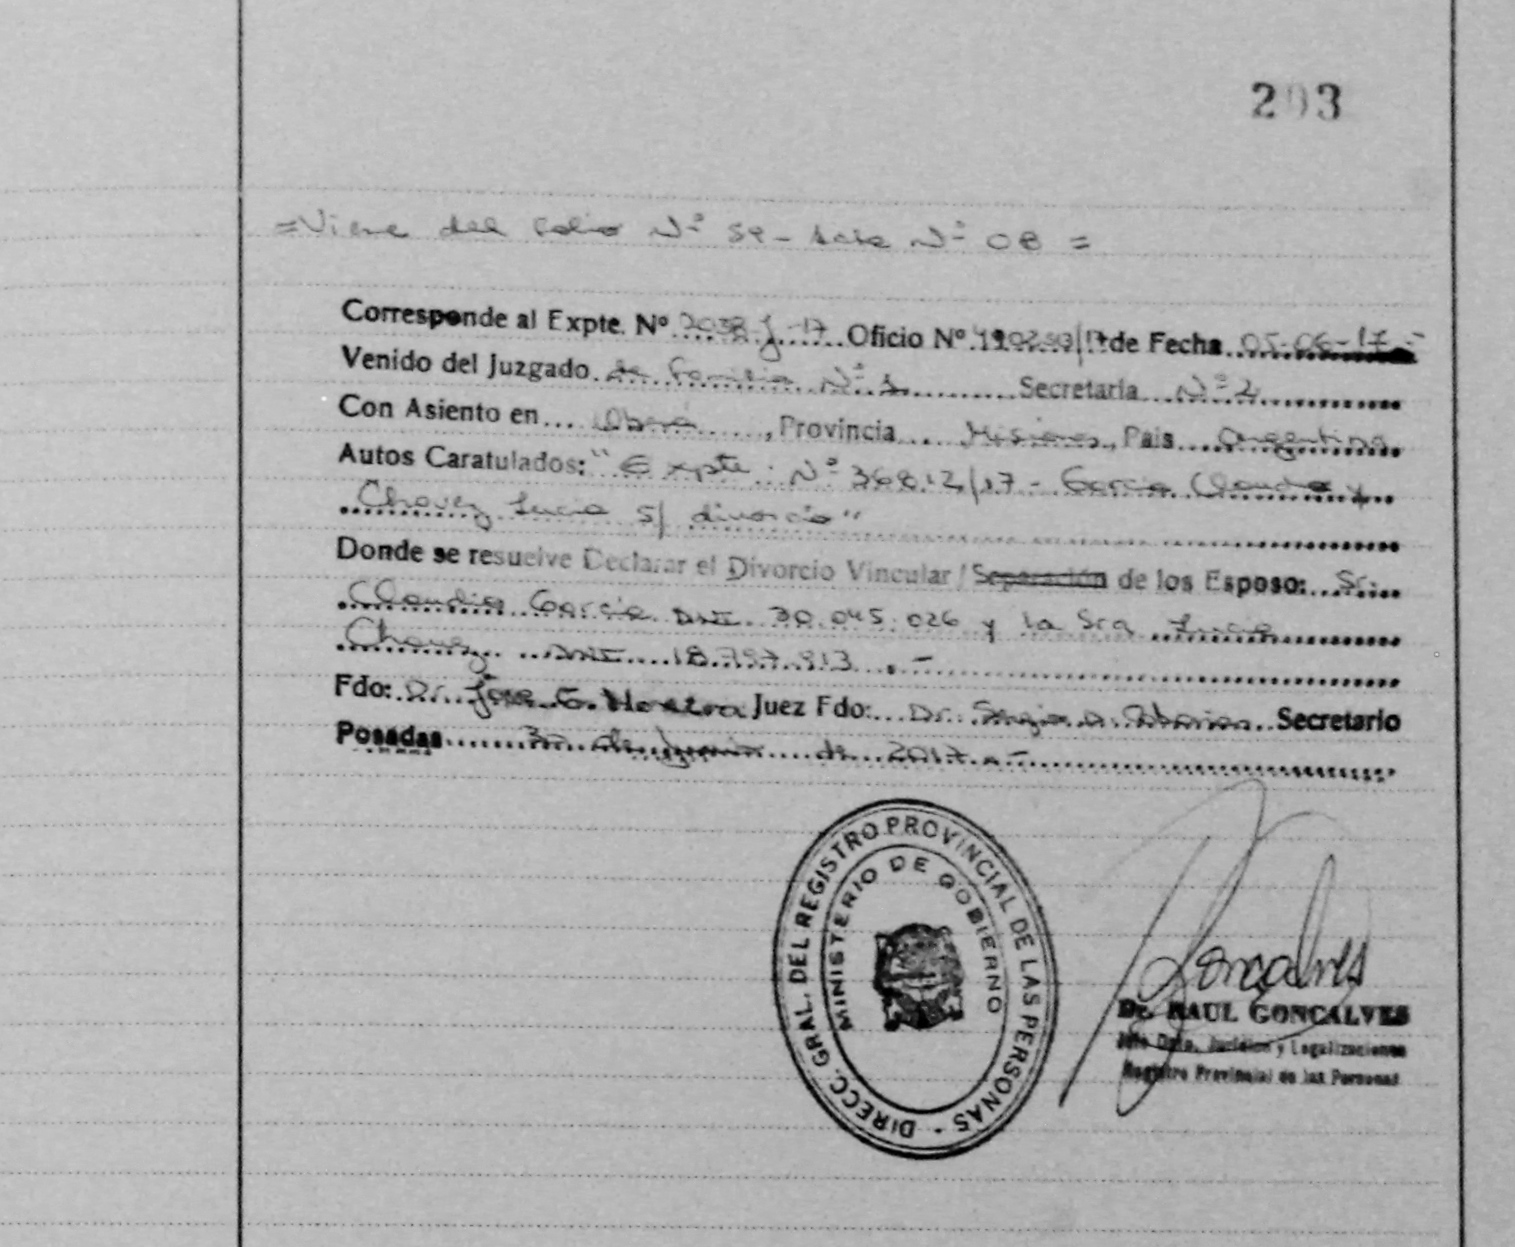 203
=Viene del folio Nº 59 - Acta Nº 08 =
Corresponde al Expte. Nº 2038-J-17 Oficio Nº de Fecha 05-06-17.-
Venido del Juzgado de Familia Nº 1 Secretaria Nº 2
Con Asiento en Oberá, Provincia Misiones, Pais Argentina
Autos Caratulados: "Expte. Nº 36812/17 - Garcia Claudio y
Chavez Lucia S/ divorcio"
Donde se resuelve Declarar el Divorcio Vincular / Separación de los Esposo: Sr.
Claudio Garcia DNI 30.045.026 y la Sra Lucia
Chavez DNI 18.797.913.-
Fdo: Dr. Jose G. Moreira Juez Fdo: Dr. Sergio Secretario
Posadas de de 2017.-
DIRECC. GRAL. DEL REGISTRO PROVINCIAL DE LAS PERSONAS -
MINISTERIO DE GOBIERNO
Goncalves
Dr. RAUL GONCALVES
Jefe Dpto. Jurídico y Legalizaciones
Registro Provincial de las Personas